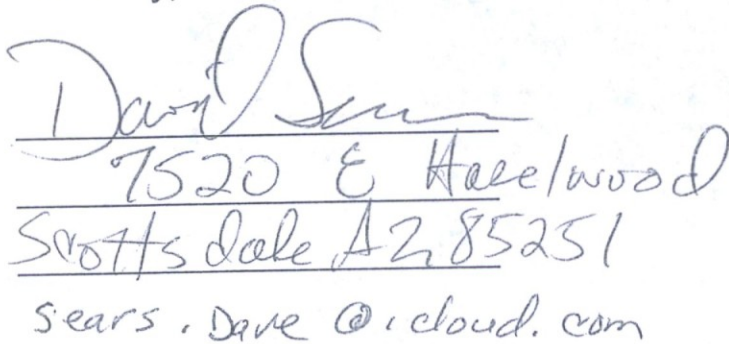 David Sears
7520 E Hazelwood
Scottsdale AZ 85251
sears.Dave@icloud.com